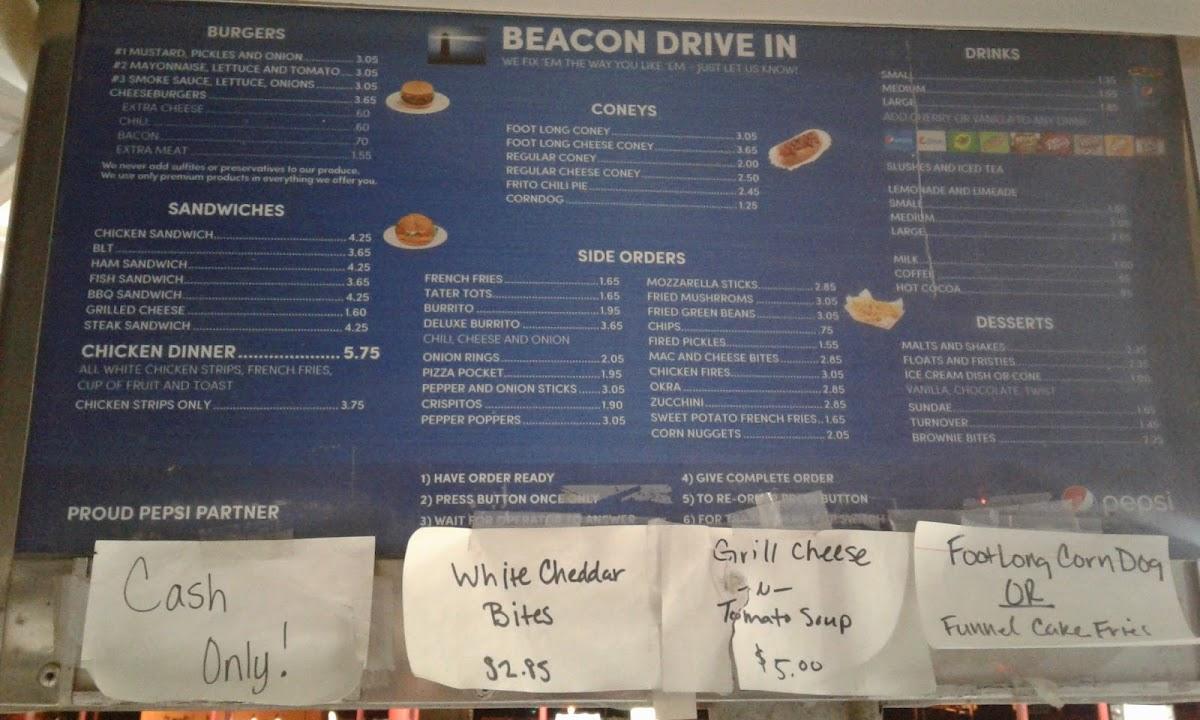 BURGERS
#1 MUSTARD, PICKLES AND ONION 3.05
#2 MAYONNAISE, LETTUCE AND TOMATO 3.05
#3 SMOKE SAUCE, LETTUCE, ONIONS 3.05
CHEESEBURGERS 3.65
EXTRA CHEESE .60
CHILI .60
BACON .70
EXTRA MEAT 1.55
We never add sulfites or preservatives to our produce.
We use only premium products in everything we offer you.
SANDWICHES
CHICKEN SANDWICH 4.25
BLT 3.65
HAM SANDWICH 4.25
FISH SANDWICH 3.65
BBQ SANDWICH 4.25
GRILLED CHEESE 1.60
STEAK SANDWICH 4.25
CHICKEN DINNER 5.75
ALL WHITE CHICKEN STRIPS, FRENCH FRIES,
CUP OF FRUIT AND TOAST
CHICKEN STRIPS ONLY 3.75
PROUD PEPSI PARTNER
BEACON DRIVE IN
WE FIX 'EM THE WAY YOU LIKE 'EM - JUST LET US KNOW!
CONEYS
FOOT LONG CONEY 3.05
FOOT LONG CHEESE CONEY 3.65
REGULAR CONEY 2.00
REGULAR CHEESE CONEY 2.50
FRITO CHILI PIE 2.45
CORNDOG 1.25
SIDE ORDERS
FRENCH FRIES 1.65
TATER TOTS 1.65
BURRITO 1.95
DELUXE BURRITO 3.65
CHILI, CHEESE AND ONION
ONION RINGS 2.05
PIZZA POCKET 1.95
PEPPER AND ONION STICKS 3.05
CRISPITOS 1.90
PEPPER POPPERS 3.05
MOZZARELLA STICKS 2.85
FRIED MUSHRROMS 3.05
FRIED GREEN BEANS 3.05
CHIPS .75
FIRED PICKLES 1.55
MAC AND CHEESE BITES 2.85
CHICKEN FIRES 3.05
OKRA 2.85
ZUCCHINI 2.85
SWEET POTATO FRENCH FRIES 1.65
CORN NUGGETS 2.05
1) HAVE ORDER READY
2) PRESS BUTTON ONCE ONLY
3) WAIT FOR OPERATOR TO ANSWER
4) GIVE COMPLETE ORDER
5) TO RE-ORDER PRESS BUTTON
6) FOR
DRINKS
SMALL 1.35
MEDIUM 1.55
LARGE 1.85
ADD CHERRY OR VANILLA TO ANY DRINK
SLUSHES AND ICED TEA
LEMONADE AND LIMEADE
SMALL
MEDIUM
LARGE
MILK
COFFEE
HOT COCOA
DESSERTS
MALTS AND SHAKES
FLOATS AND FRISTIES
ICE CREAM DISH OR CONE
VANILLA, CHOCOLATE, TWIST
SUNDAE 1.65
TURNOVER 1.45
BROWNIE BITES
pepsi
Cash
Only!
White Cheddar
Bites
$2.85
Grill Cheese
-N-
Tomato Soup
$5.00
FootLong Corn Dog
OR
Funnel Cake Fries